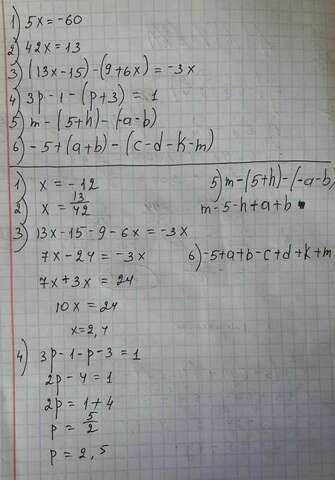 1) 5x = -60
2) 42x = 13
3) (13x-15)-(9+6x) = -3x
4) 3p-1-(p+3) = 1
5) m-(5+h)-(-a-b)
6) -5+(a+b)-(c-d-k-m)
1) x = -12
2) x = 13/42
3) 13x-15-9-6x = -3x
7x-24 = -3x
7x+3x = 24
10x = 24
x=2,4
4) 3p-1-p-3 = 1
2p-4 = 1
2p = 1+4
p = 5/2
p = 2,5
5) m-(5+h)-(-a-b)
m-5-h+a+b
6) -5+a+b-c+d+k+m